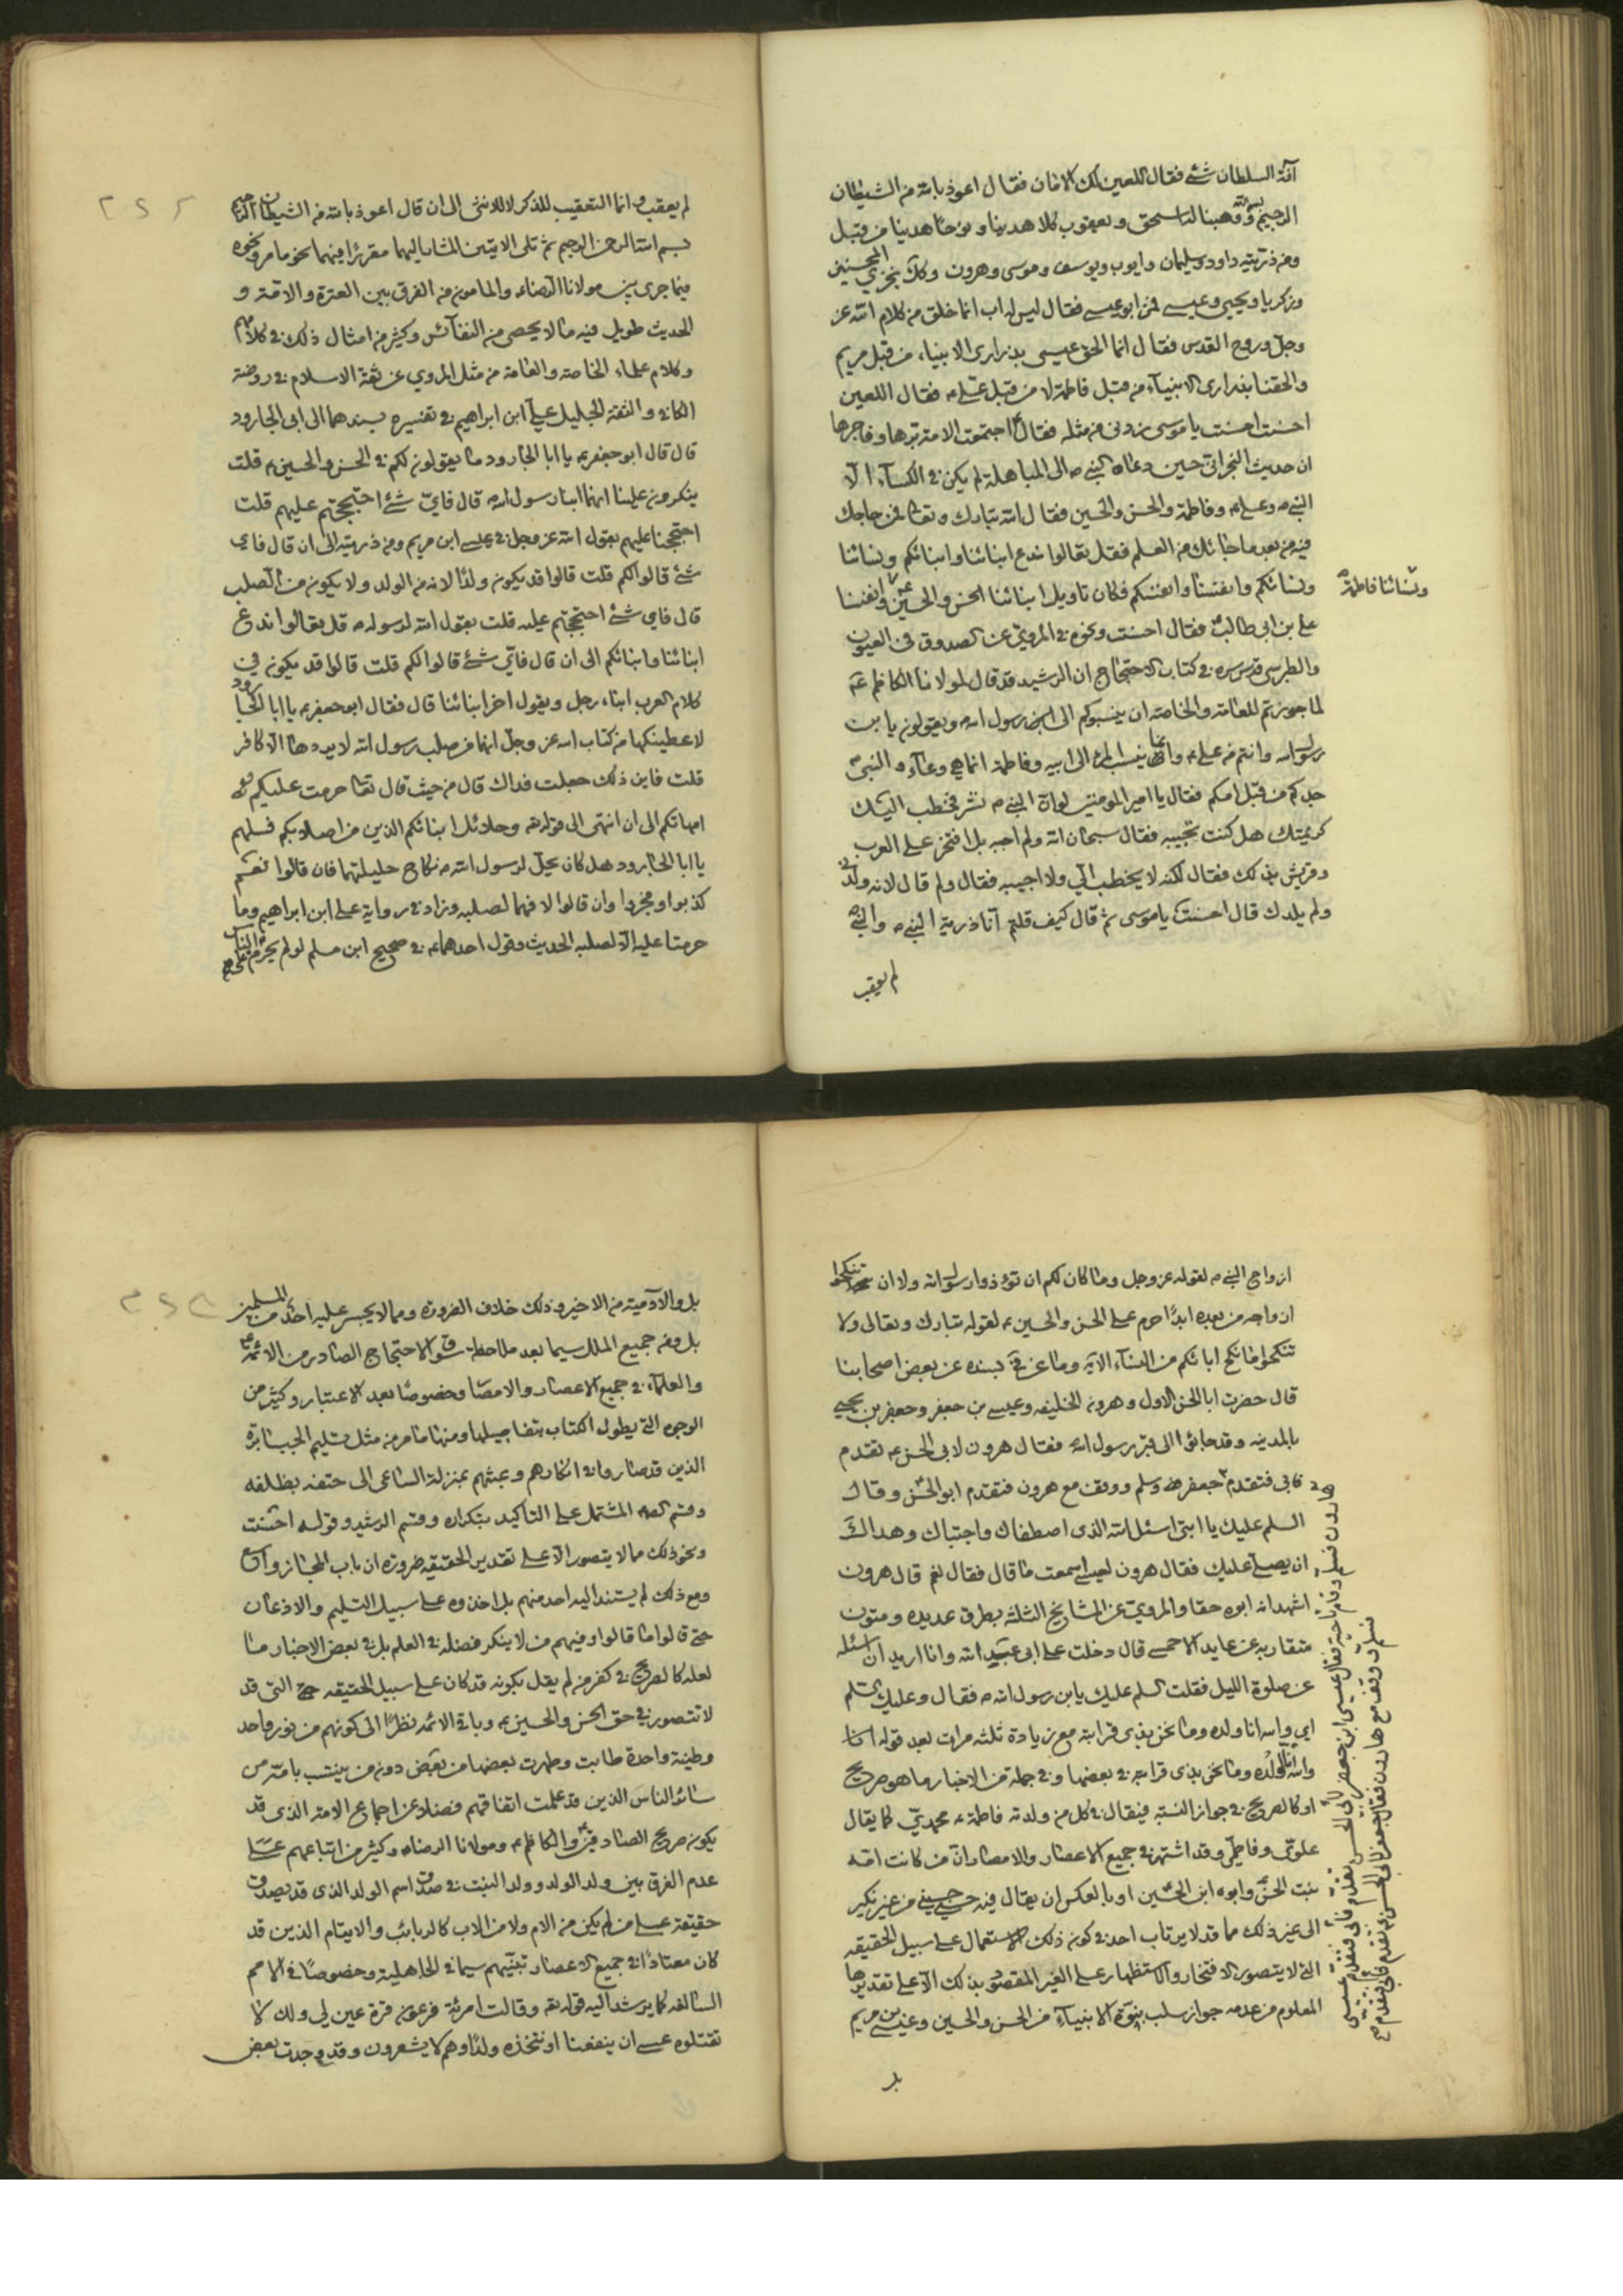 آفة السلطان شئ فقال اللعين لك الامان فقال اعوذ بالله من الشيطان
الرجيم بسم الله ووهبنا له اسحق ويعقوب كلا هدينا ونوحا هدينا من قبل
ومن ذريته داود وسليمان وايوب ويوسف وموسى وهرون وكذلك نجزي المحسنين
وزكريا ويحيى وعيسى فمن ابو عيسى فقال ليس له اب انما خلق من كلام الله عز
وجل وروح القدس فقال انما الحق عيسى بذراري الانبياء من قبل مريم
والحقنا بذراري الانبيآء من قبل فاطمة لا من قبل علي ع فقال اللعين
احسنت احسنت يا موسى زدني من مثله فقال ع اجتمعت الامة برّها وفاجرها
ان حديث النجراني حين دعاه النبي ص الى المباهلة لم يكن في الكسآء الّا
النبي ص وعلي ع وفاطمة والحسن والحسين فقال الله تبارك وتعالى فمن حاجك
فيه من بعد ما جائك من العلم فقل تعالوا ندع ابنائنا وابنائكم ونسائنا
ونسائكم وانفسنا وانفسكم فكان تاويل ابنائنا الحسن والحسين ع وانفسنا
ونسائنا فاطمة
علي بن ابي طالب فقال احسنت ونحوه في المروي عن الصدوق في العيون
والطبرسي قدس سره في كتاب الاحتجاج ان الرشيد قد قال لمولانا الكاظم ع
لما جوزتم للعامة والخاصة ان ينسبوكم الى رسول الله ويقولون يا بن
رسول الله وانتم من علي ع وانما ينسب المرء الى ابيه وفاطمة انما هي وعآء والنبي ص
جدكم من قبل امكم فقال يا امير المومنين لو ان النبي ص نشر فخطب اليك
كريمتك هل كنت تجيبه فقال سبحان الله ولم اجبه بل افتخر على العرب
وقريش بذلك فقال لكنه لا يخطب الي ولا اجيبه فقال ولم قال لانه ولدني
ولم يلدك قال احسنت يا موسى ثم قال كيف قلتم انا ذرية النبي ص والنبي ص
لم يعقب
لم يعقب وانما التعقيب للذكر لا للانثى الى ان قال اعوذ بالله من الشيطان الرجيم
بسم الله الرحمن الرحيم ثم تلى الايتين المشار اليهما مقررا فيهما نحو ما مر ونحوه
فيما جرى بين مولانا الرضاء والمامون من الفرق بين العترة والامة و
الحديث طويل فيه ما لا يحصى من النفائس وكثير من امثال ذلك في كلامهم
وكلام علماء الخاصة والعامة من مثل المروي عن ثقة الاسلام في روضة
الكافي والثقة الجليل علي ابن ابراهيم في تفسيره بسندهما الى ابي الجارود
قال قال ابو جعفر ع يا ابا الجارود ما يقولون لكم في الحسن والحسين ع قلت
ينكرون علينا انهما ابنا رسول الله قال فاي شئ احتججتم عليهم قلت
احتججنا عليهم بقول الله عز وجل في عيسى ابن مريم ومن ذريته الى ان قال فاي
شئ قالوا لكم قلت قالوا قد يكون ولد الابنة من الولد ولا يكون من الصلب
قال فاي شئ احتججتم عليه قلت بقول الله لرسوله ص قل تعالوا ندع
ابنائنا وابنائكم الى ان قال فاي شئ قالوا لكم قلت قالوا قد يكون في
كلام العرب ابناء رجل ويقول اخر ابنائنا قال فقال ابو جعفر ع يا ابا الجارود
لاعطينكها من كتاب الله عز وجل انهما من صلب رسول الله لا يردها الا كافر
قلت فاين ذلك جعلت فداك قال من حيث قال تعا حرمت عليكم
امهاتكم الى ان انتهى الى قوله تعه وحلائل ابنائكم الذين من اصلابكم فسلهم
يا ابا الجارود هل كان يحل لرسول الله ص نكاح حليلتهما فان قالوا نعم
كذبوا وفجروا وان قالوا لا فهما لصلبه وزاد في رواية علي ابن ابراهيم وما
حرمتا عليه الا لصلبه الحديث وقول احدهما ع في صحيح ابن مسلم لو لم يحرم على الناس
ازواج النبي ص لقوله عز وجل وما كان لكم ان تؤذوا رسول الله ولا ان تنكحوا
ازواجه من بعده ابدًا حرم على الحسن والحسين ع لقوله تبارك وتعالى ولا
تنكحوا ما نكح ابائكم من النساء الاية وما عن في بسنده عن بعض اصحابنا
قال حضرت ابا الحسن الاول وهرون الخليفه وعيسى بن جعفر وجعفر بن يحيى
بالمدينه وقد جائوا الى قبر رسول الله فقال هرون لابي الحسن ع تقدم
فابى فتقدم جعفر فسلم ووقف مع هرون فتقدم ابو الحسن وقال
السلم عليك يا ابتي اسئل الله الذي اصطفاك واجتباك وهداك
ان يصلي عليك فقال هرون لعيسى سمعت ما قال فقال نعم قال هرون
اشهد انه ابوه حقا والمروي عن المشايخ الثلثة بطرق عديده ومتون
متقاربه عن عايد الاحمسي قال دخلت على ابي عبد الله وانا اريد ان اسئله
عن صلوة الليل فقلت السلم عليك يا بن رسول الله ص فقال وعليك السلم
اي والله انا ولده وما نحن بذي قرابة مع زيادة ثلثه مرات بعد قوله انا
والله انا لولده وما نحن بذي قرابته في بعضها وفي جملة من الاخبار ما هو صريح
او كالصريح في جواز النسبة فيقال في كل من ولدته فاطمة ع محمدي كما يقال
علوي وفاطمي وقد اشتهر في جميع الاعصار والامصار ان من كانت امه
بنت الحسن وابوه ابن الحسين او بالعكس ان يقال فيه حسني حسيني من غير نكير
الى غير ذلك مما قد لا يرتاب احد في كون ذلك الاستعمال على سبيل الحقيقه
التي لا يتصور الافتخار والاستظهار على الغير المقصود بذلك الا على تقديرها
المعلوم من عدمه جواز سلب بنوة الانبيآء من الحسن والحسين وعيسى بن مريم
بل
بل والآدمية من الاخير وذلك خلاف الضرورة ومما لا يجسر عليه احد من المسلمين
بل ومن جميع الملل سيما بعد ملاحظة الاحتجاج الصادر من الائمة ع
والعلمآء في جميع الاعصار والامصار وخصوصًا بعد الاعتبار وكثير من
الوجوه التي يطول الكتاب بتفاصيلها ومنها ما مر من مثل تسليم الجبابرة
الذين قد صاروا في انكارهم وعبثهم بمنزلة الساعي الى حتفه بظلفه
وقسم المشتمل على التاكيد بتكراره وقسم الرشيد وقوله احسنت
ونحو ذلك مما لا يتصور الا على تقدير الحقيقه ضرورة ان باب المجاز واسع
ومع ذلك لم يستند اليه احد منهم بل اخذوه على سبيل التسليم والاذعان
حتى قالوا ما قالوا وفيهم من لا ينكر فضله في العلم بل في بعض الاخبار ما
لعله كالصريح في كفر من لم يقل بكونه قد كان على سبيل الحقيقه التي قد
لا تتصور في حق الحسن والحسين ع وباقي الائمه نظرًا الى كونهم من نور واحد
وطينة واحدة طابت وطهرت بعضها من بعض دون من ينتسب بامه من
سائر الناس الذين قد علمت اتفاقهم فضلا عن اجماع الامة الذي قد
يكون صريح الصادقين والكاظم ع ومولانا الرضاء وكثير من اتباعهم على
عدم الفرق بين ولد الولد وولد البنت في صدق اسم الولد الذي قد يصدق
حقيقة على من لم يكن من الام ولا من الاب كالربائب والايتام الذين قد
كان معتادًا في جميع الاعصار تبنيهم سيما في الجاهلية وخصوصًا في الامم
السالفه كما يرشد اليه قوله تعه وقالت امرئة فرعون قرة عين لي ولك لا
تقتلوه عسى ان ينفعنا او نتخذه ولدًا وهم لا يشعرون وقد وجدت بعض